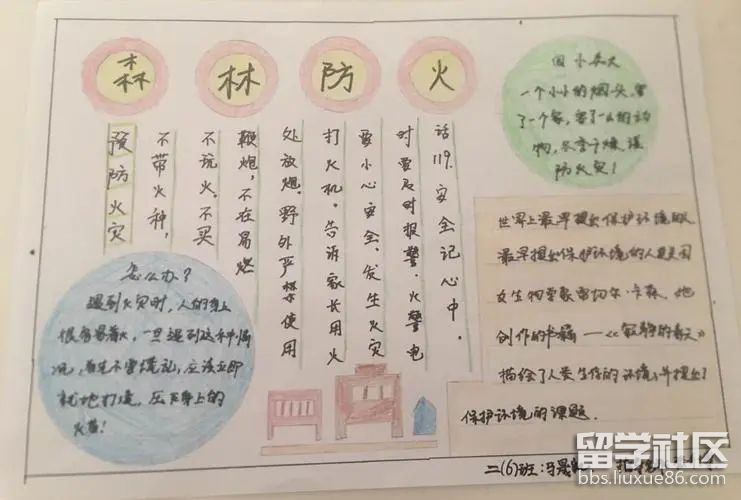 森林防火
预防火灾
不带火种，
不玩火。不买
鞭炮，不在易燃
处放炮。野外严禁使用
打火机。告诉家长用火
要小心安全。发生火灾
时要及时报警。火警电
话119。安全记心中。
因小失大
一个小小的烟头，害
了一个家，害了一山的动
物，冬季干燥，谨
防火灾！
怎么办？
遇到火灾时，人的身上
很容易着火，一旦遇到这种情
况，首先不要慌乱，应该立即
就地打滚，压下身上的
火苗！
世界上最早提出保护环境的人
最早提出保护环境的人是美国
女生物学家雷切尔·卡森。她
创作的书籍——《寂静的春天》
描绘了人类生存的环境，并提出了
保护环境的课题．
二(6)班：马晟
留学社区
bbs.liuxue86.com